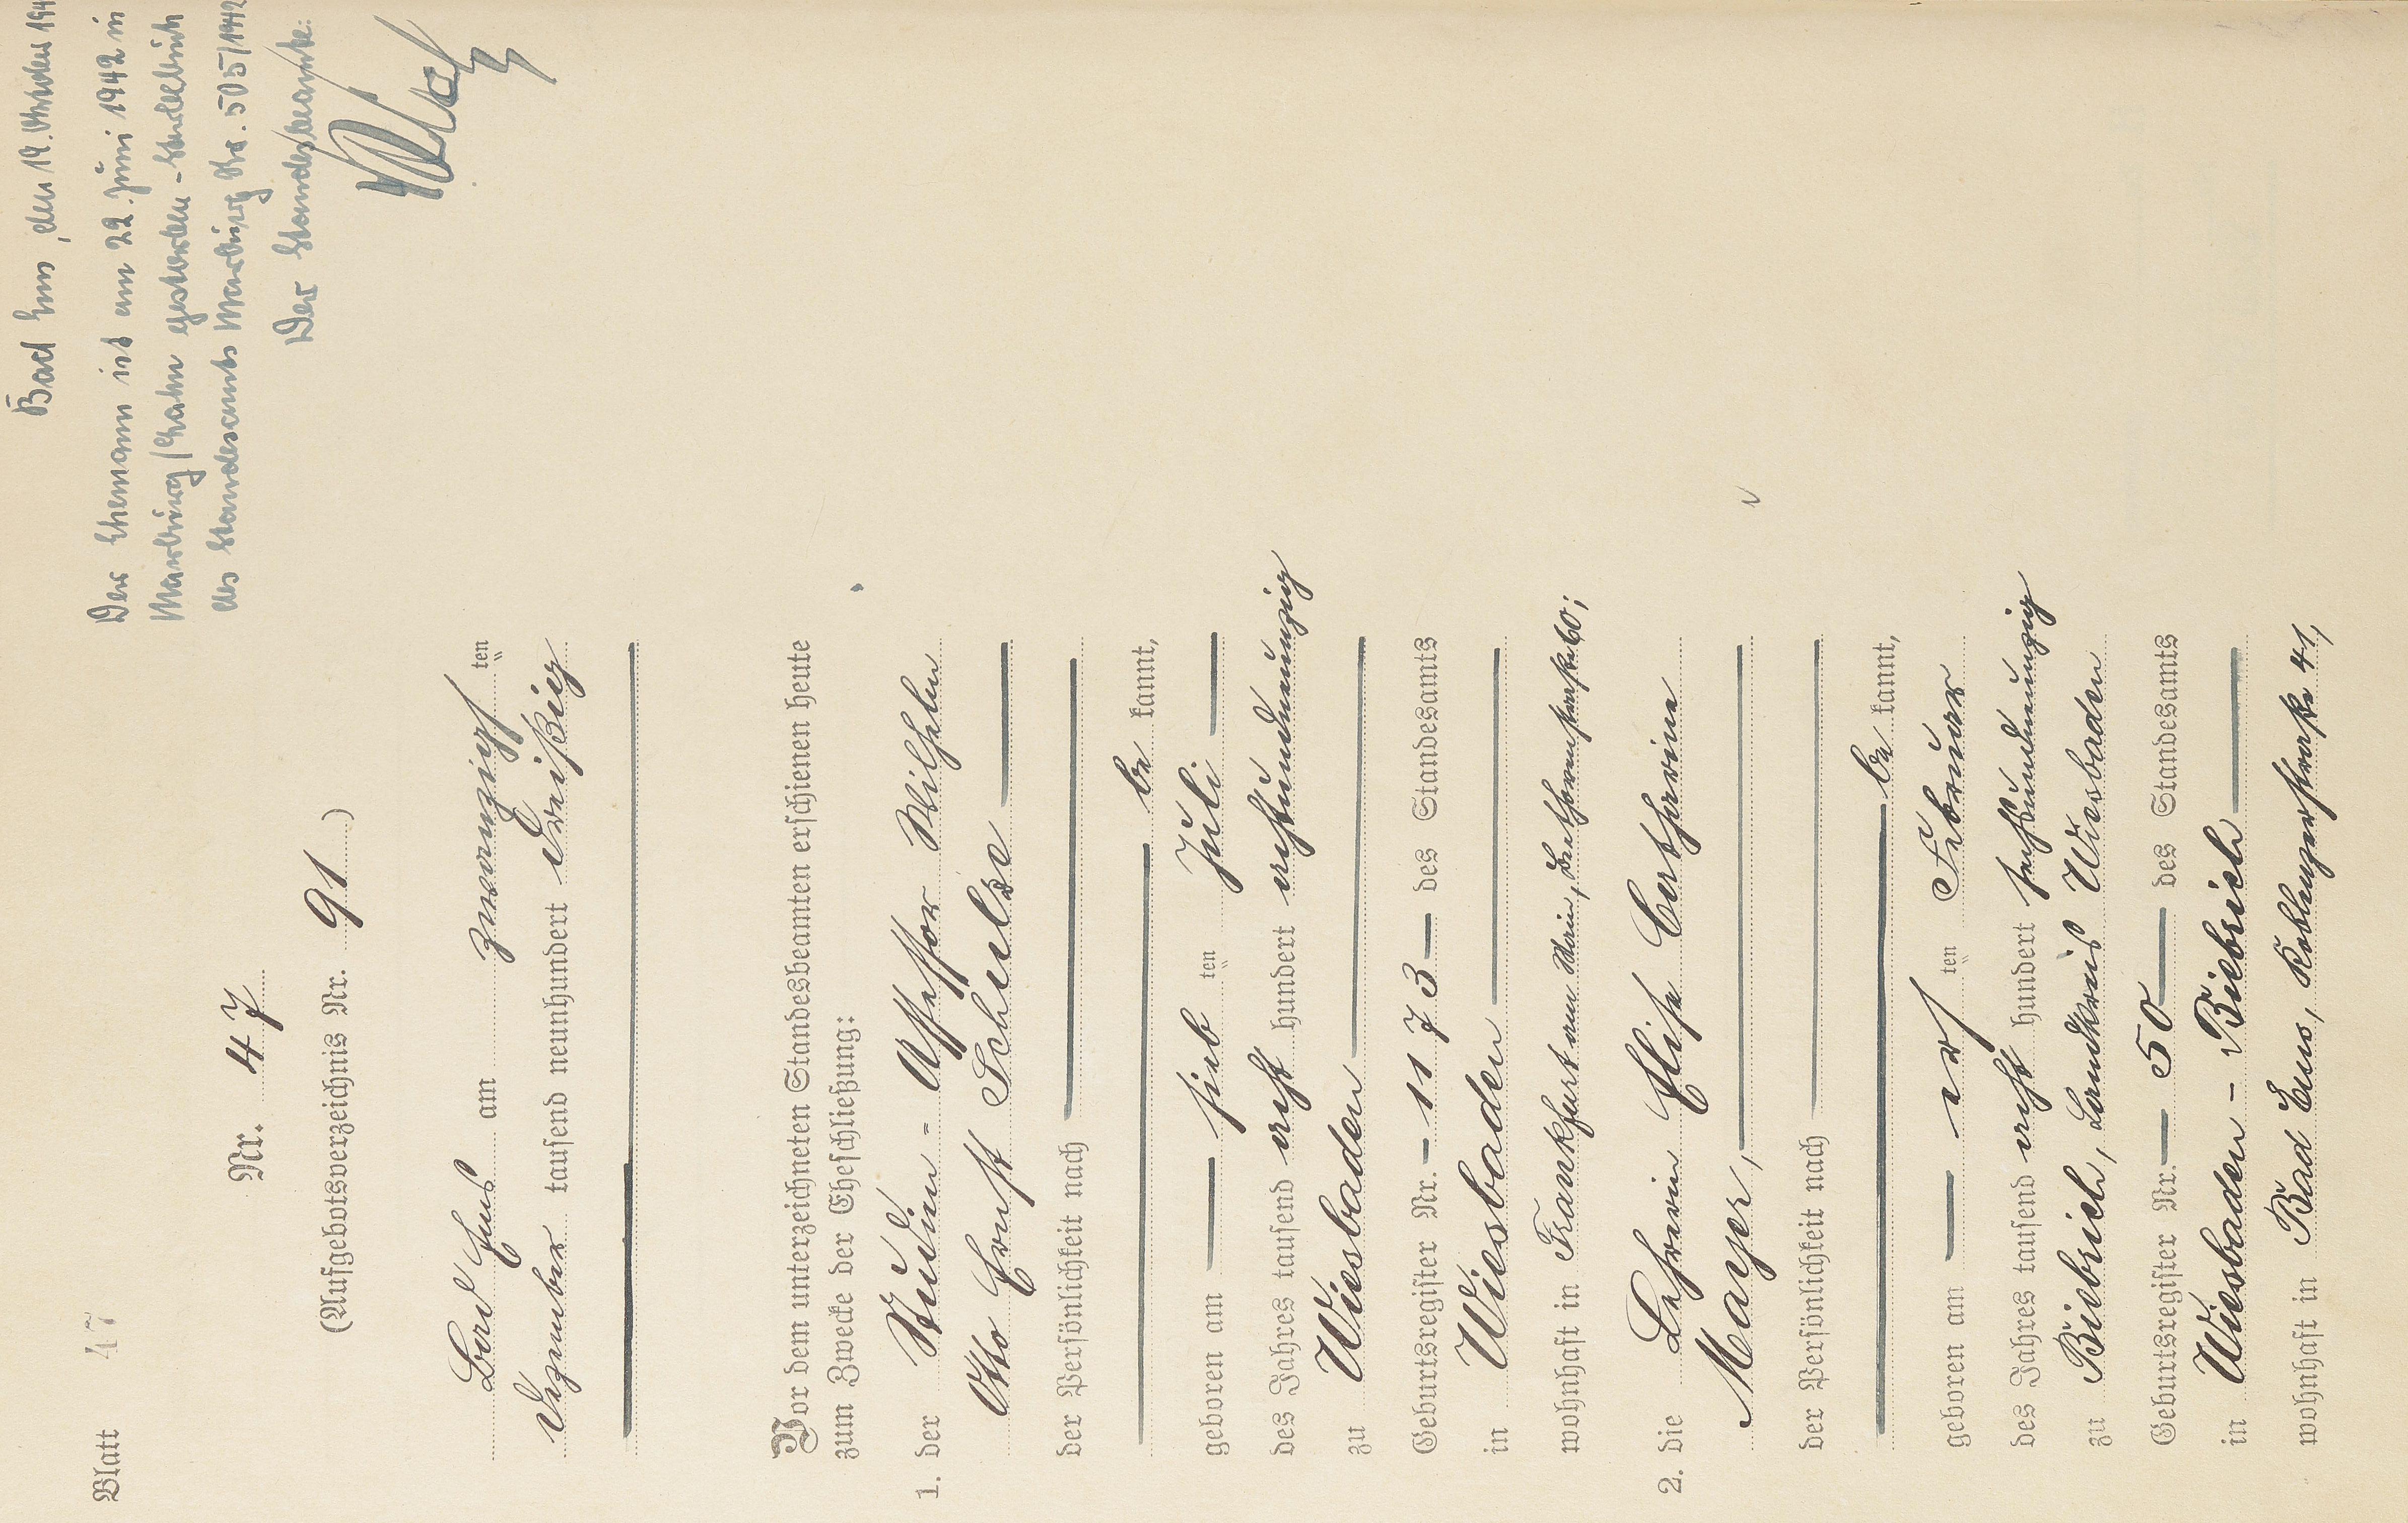 Blatt 47
Bad Ems, den 19. Oktober 194
Der Ehemann ist am 22. Juni 1942 in
Marburg/Lahn gestorben - Sterbebuch
des Standesamts Marburg Nr. 505/1942
Der Standesbeamte:
Nr. 47
(Aufgebotsverzeichnis Nr. 91)
Bad Ems am zwanzigsten
Dezember tausend neunhundert dreißig
Vor dem unterzeichneten Standesbeamten erschienen heute
zum Zwecke der Eheschließung:
1. der Studien-Assessor Wilhelm
Otto Ernst Schulze
der Persönlichkeit nach
be kannt,
geboren am sieb ten Juli
des Jahres tausend acht hundert achtundneunzig
zu Wiesbaden
Geburtsregister Nr. 1173 des Standesamts
in Wiesbaden
wohnhaft in Frankfurt am Main, 60;
2. die Lehrerin Elise Catharina
Mayer,
der Persönlichkeit nach
be kannt,
geboren am ers ten Februar
des Jahres tausend acht hundert sechsundneunzig
zu Biebrich, Landkreis Wiesbaden
Geburtsregister Nr. 50 des Standesamts
in Wiesbaden-Biebrich
wohnhaft in Bad Ems, Koblenzerstraße 41,